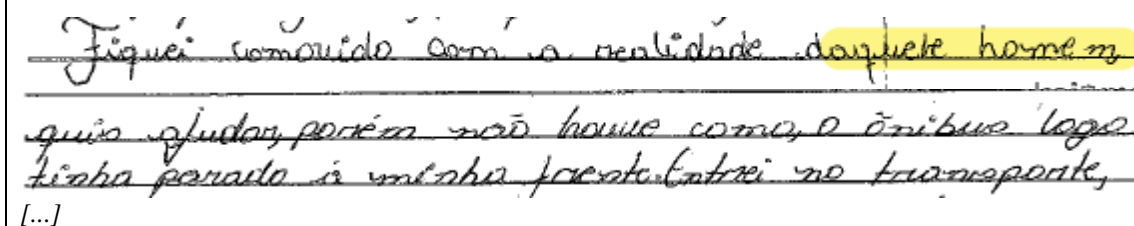 Fiquei comovido com a realidade daquele homem
quis ajudar, porém não houve como, o ônibus logo
tinha parado à minha frente. Entrei no transporte,
[...]